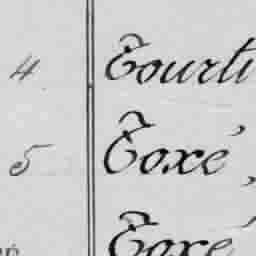 4 Tourti
5 Toxé,
Toxé